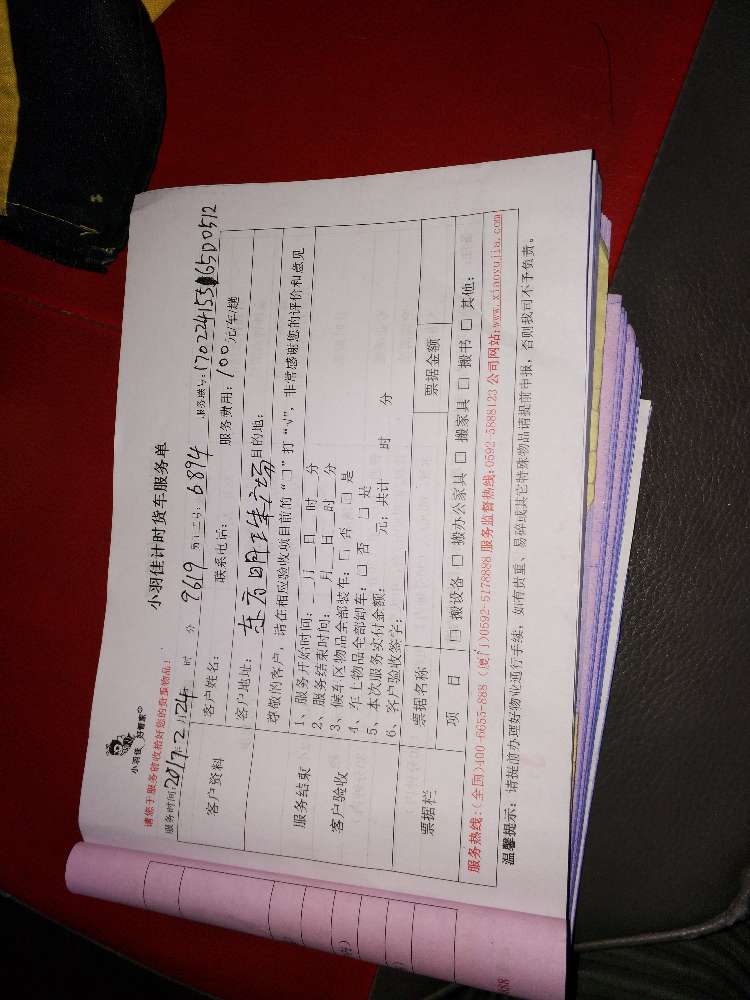 小羽佳 好管家
小羽佳计时货车服务单
请您于服务前收拾好您的贵重物品!
服务时间:2017年2月24日 时 分 9619 员工号:6894 服务账号:
客户资料
客户姓名: 联系电话: 服务费用:100元/车/趟
客户地址:东方明珠广场 目的地:
尊敬的客户,请在相应验收项目前的“□”打“√”,非常感谢您的评价和意见
服务结束
客户验收
1、服务开始时间: 月 日 时 分
2、服务结束时间: 月 日 时 分
3、候车区物品全部装车:□ 否 □ 是
4、车上物品全部卸车:□ 否 □ 是
5、本次服务实付金额: 元;共计 时 分
6、客户验收签字:
票据栏
票据名称 票据金额
项 目 □ 搬设备 □ 搬办公家具 □ 搬家具 □ 搬书 □ 其他:
服务热线:(全国)400-6655-888 (厦门)0592-5178888 服务监督热线:0592-5888123 公司网站:www.xiaoyujia.com
温馨提示:请提前办理好物业通行手续,如有贵重、易碎或其它特殊物品请提前申报,否则我司不予负责。